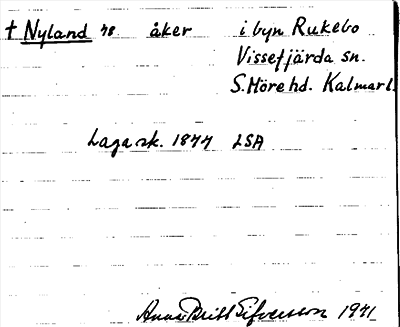 † Nyland 78 åker i byn Rukebo
Vissefjärda sn.
S. Möre hd. Kalmar l.
Laga sk. 1877 LSA
Anna Britt Sifversson 1971